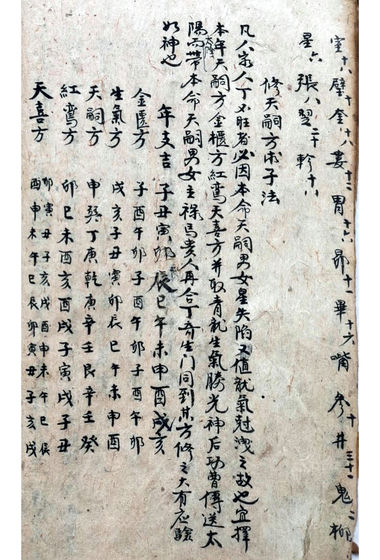 室十八壁十奎十八娄十二胃十六昴十一畢十六嘴參十井三十一鬼二柳
星六張八翌二十軫十八
修天嗣方求子法
凡人家人丁不旺者必因本命天嗣男女星失陷又值龍氣尅洩之故也宜擇
本年天嗣方金櫃方紅鸞天喜方并取青龍生氣勝光神后功曹傳送太
陽而帶本命天嗣男女主祿馬貴人再合丁奇生門同到其方修之大有应驗
如神也
年支吉 子丑寅卯辰巳午未申酉戌亥
金匱方 子酉午卯子酉午卯子酉午卯
生氣方 戌亥子丑寅卯辰巳午未申酉
天嗣方 申癸丁庚乾庚辛壬艮辛壬癸
紅鸞方 卯巳未酉亥酉戌子寅戌子丑
天喜方 酉申未午巳辰卯寅丑子亥戌
卯寅丑子亥戌酉申未午巳辰